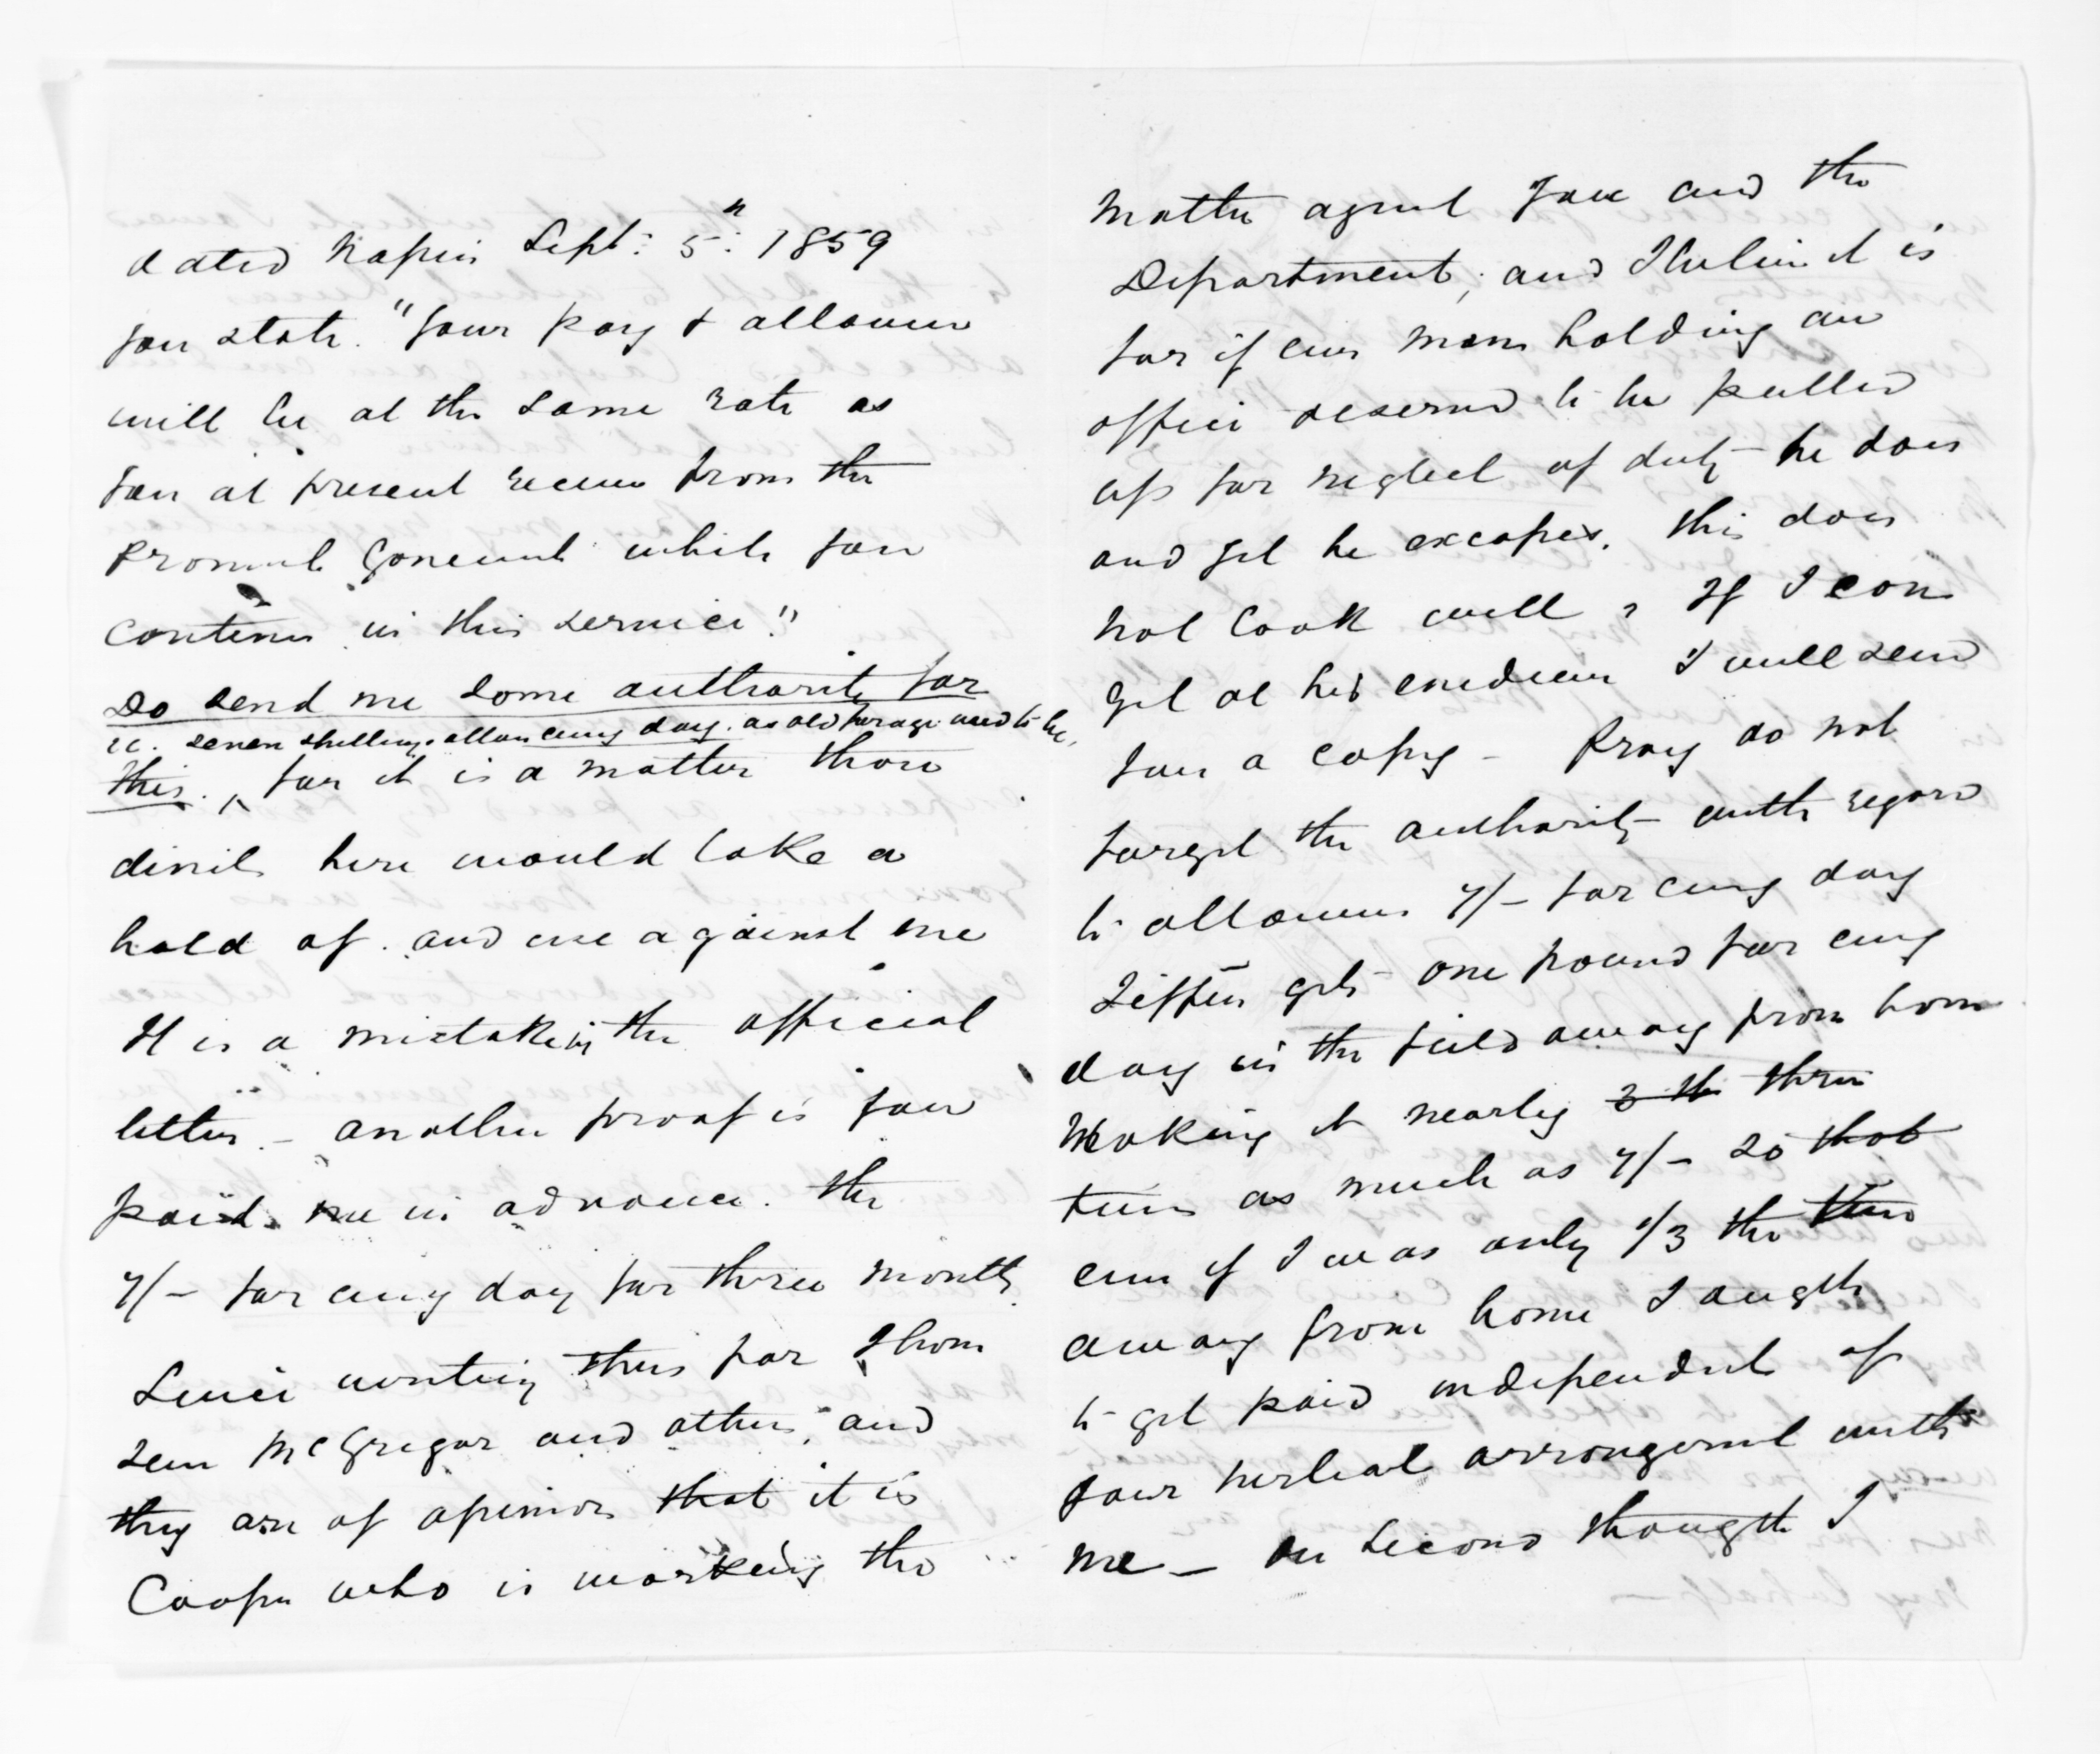 dated Napier Sept: 5th: 1859
you state. "Your pay & allowance
will be at the same rate as
you at present receive from the
Provincial Government while you
continue in this service."
Do send me some authority for
ie. seven shillings allowance every day. as old forage used to be,
this. ^ for it is a matter those
devils here would take a
hold of. and use against me
It is a mistake in the official
letter. - another proof is you
paid me in advance. the
7/- for every day for three months.
Since writing this far I have
seen McGregor and others, and
they are of opinion that it is
Cooper who is working the
matter against you and the
Department, and I believe it is
for if ever man holding an
office deserved to be pulled
up for neglect of duty - he does
and yet he escapes. This does
not look well, If I can
get at his evidence I will send
you a copy - Pray do not
forget the authority with regard
to allowance 7/- for every day
gets one pound for every
day in the field away from home
Making it nearly 3 th three
times as much as 7/- so that
even if I was only 1/3 the time
away from home I ought
to get paid independent of
your verbal arrangement with
me - On second thought I